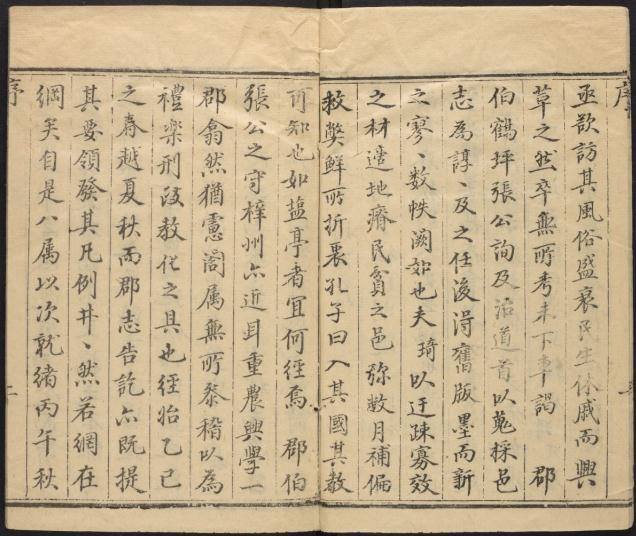 序
亟欲訪其風俗盛衰民生休戚而興
草之然卒無所考未下車謁 郡
伯鶴坪張公詢及治道首以蒐採邑
志為諄〻及之任後淂舊版墨而新
之寥〻数帙闕如也夫琦以迂疎寡效
之材遭地瘠民貧之邑弥数月補偏
救獘鮮所折衷孔子曰入其國其教
可知也如盐亭者冝何經焉 郡伯
張公之守梓州六近耳重農興學一
郡翕然猶慮闔属無所叅稽以為
禮楽刑政教化之具也經始乙已
之春越夏秋而郡志告訖六既提
其要領發其凡例井〻然若網在
綱矣自是八属以次就緒丙午秋
序
二